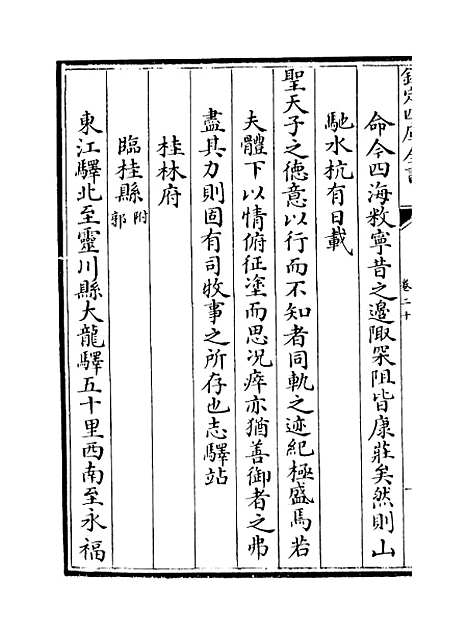 欽定四庫全書
卷二十
命令四海敉寧昔之邊陬罙阻皆康莊矣然則山
馳水杭有日載
聖天子之德意以行而不知者同軌之迹紀極盛焉若
夫體下以情俯征塗而思况瘁亦猶善御者之弗
盡其力則固有司牧事之所存也志驛站
桂林府
臨桂縣附郭
東江驛北至靈川縣大龍驛五十里西南至永福